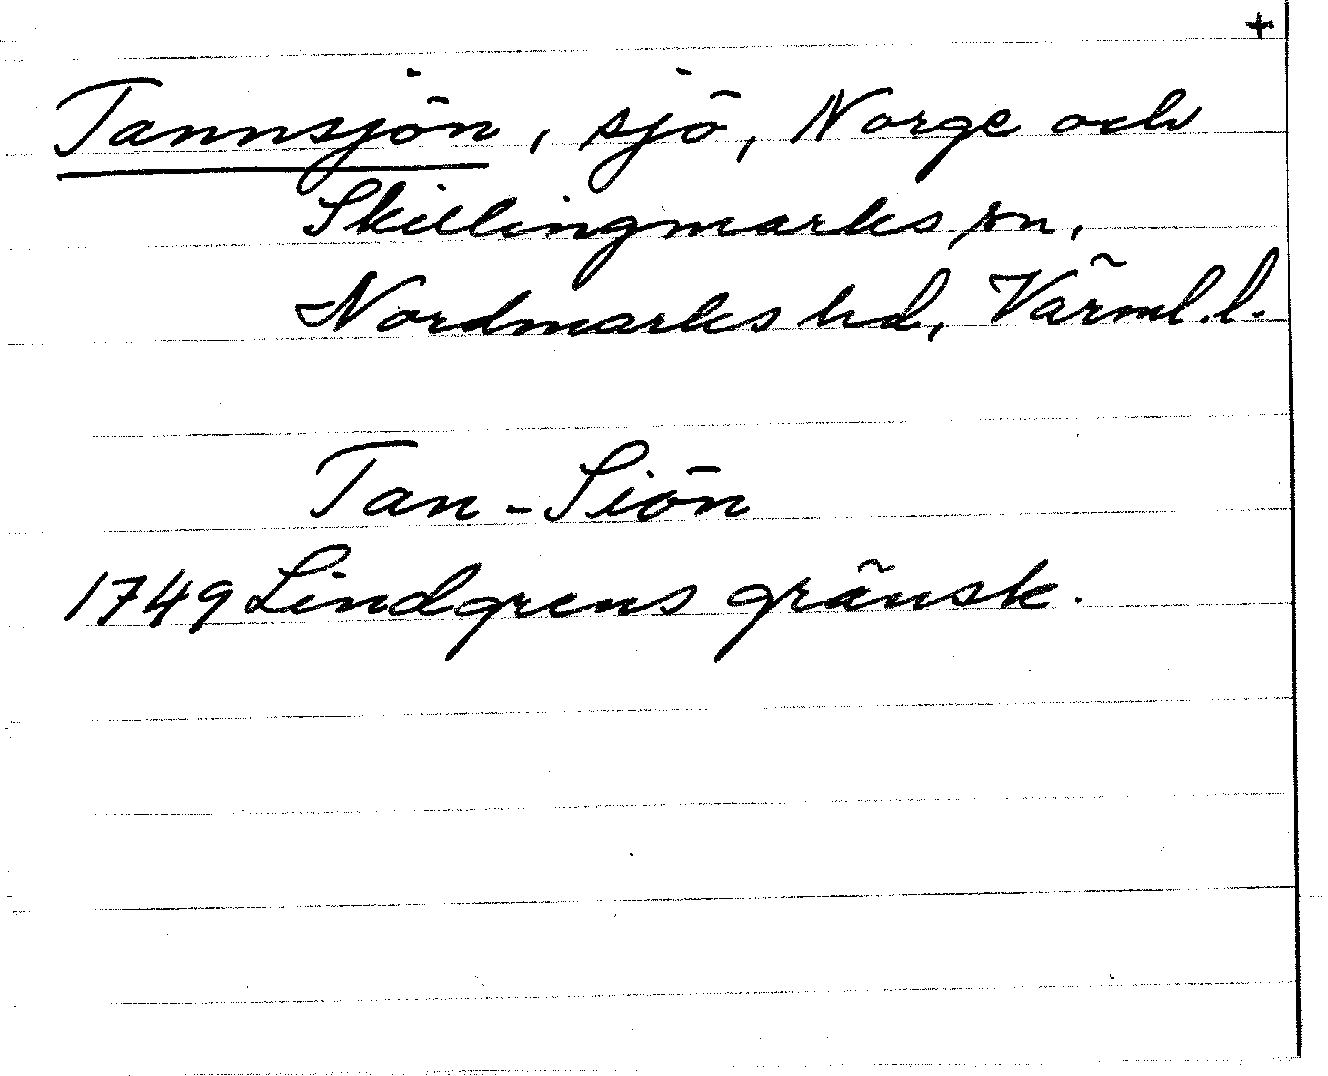 +
Tannsjön, sjö, Norge och
Skillingmarks sn,
Nordmarks hd, Värml. l.
Tan-Siön
1749 Lindgrens gränsk.